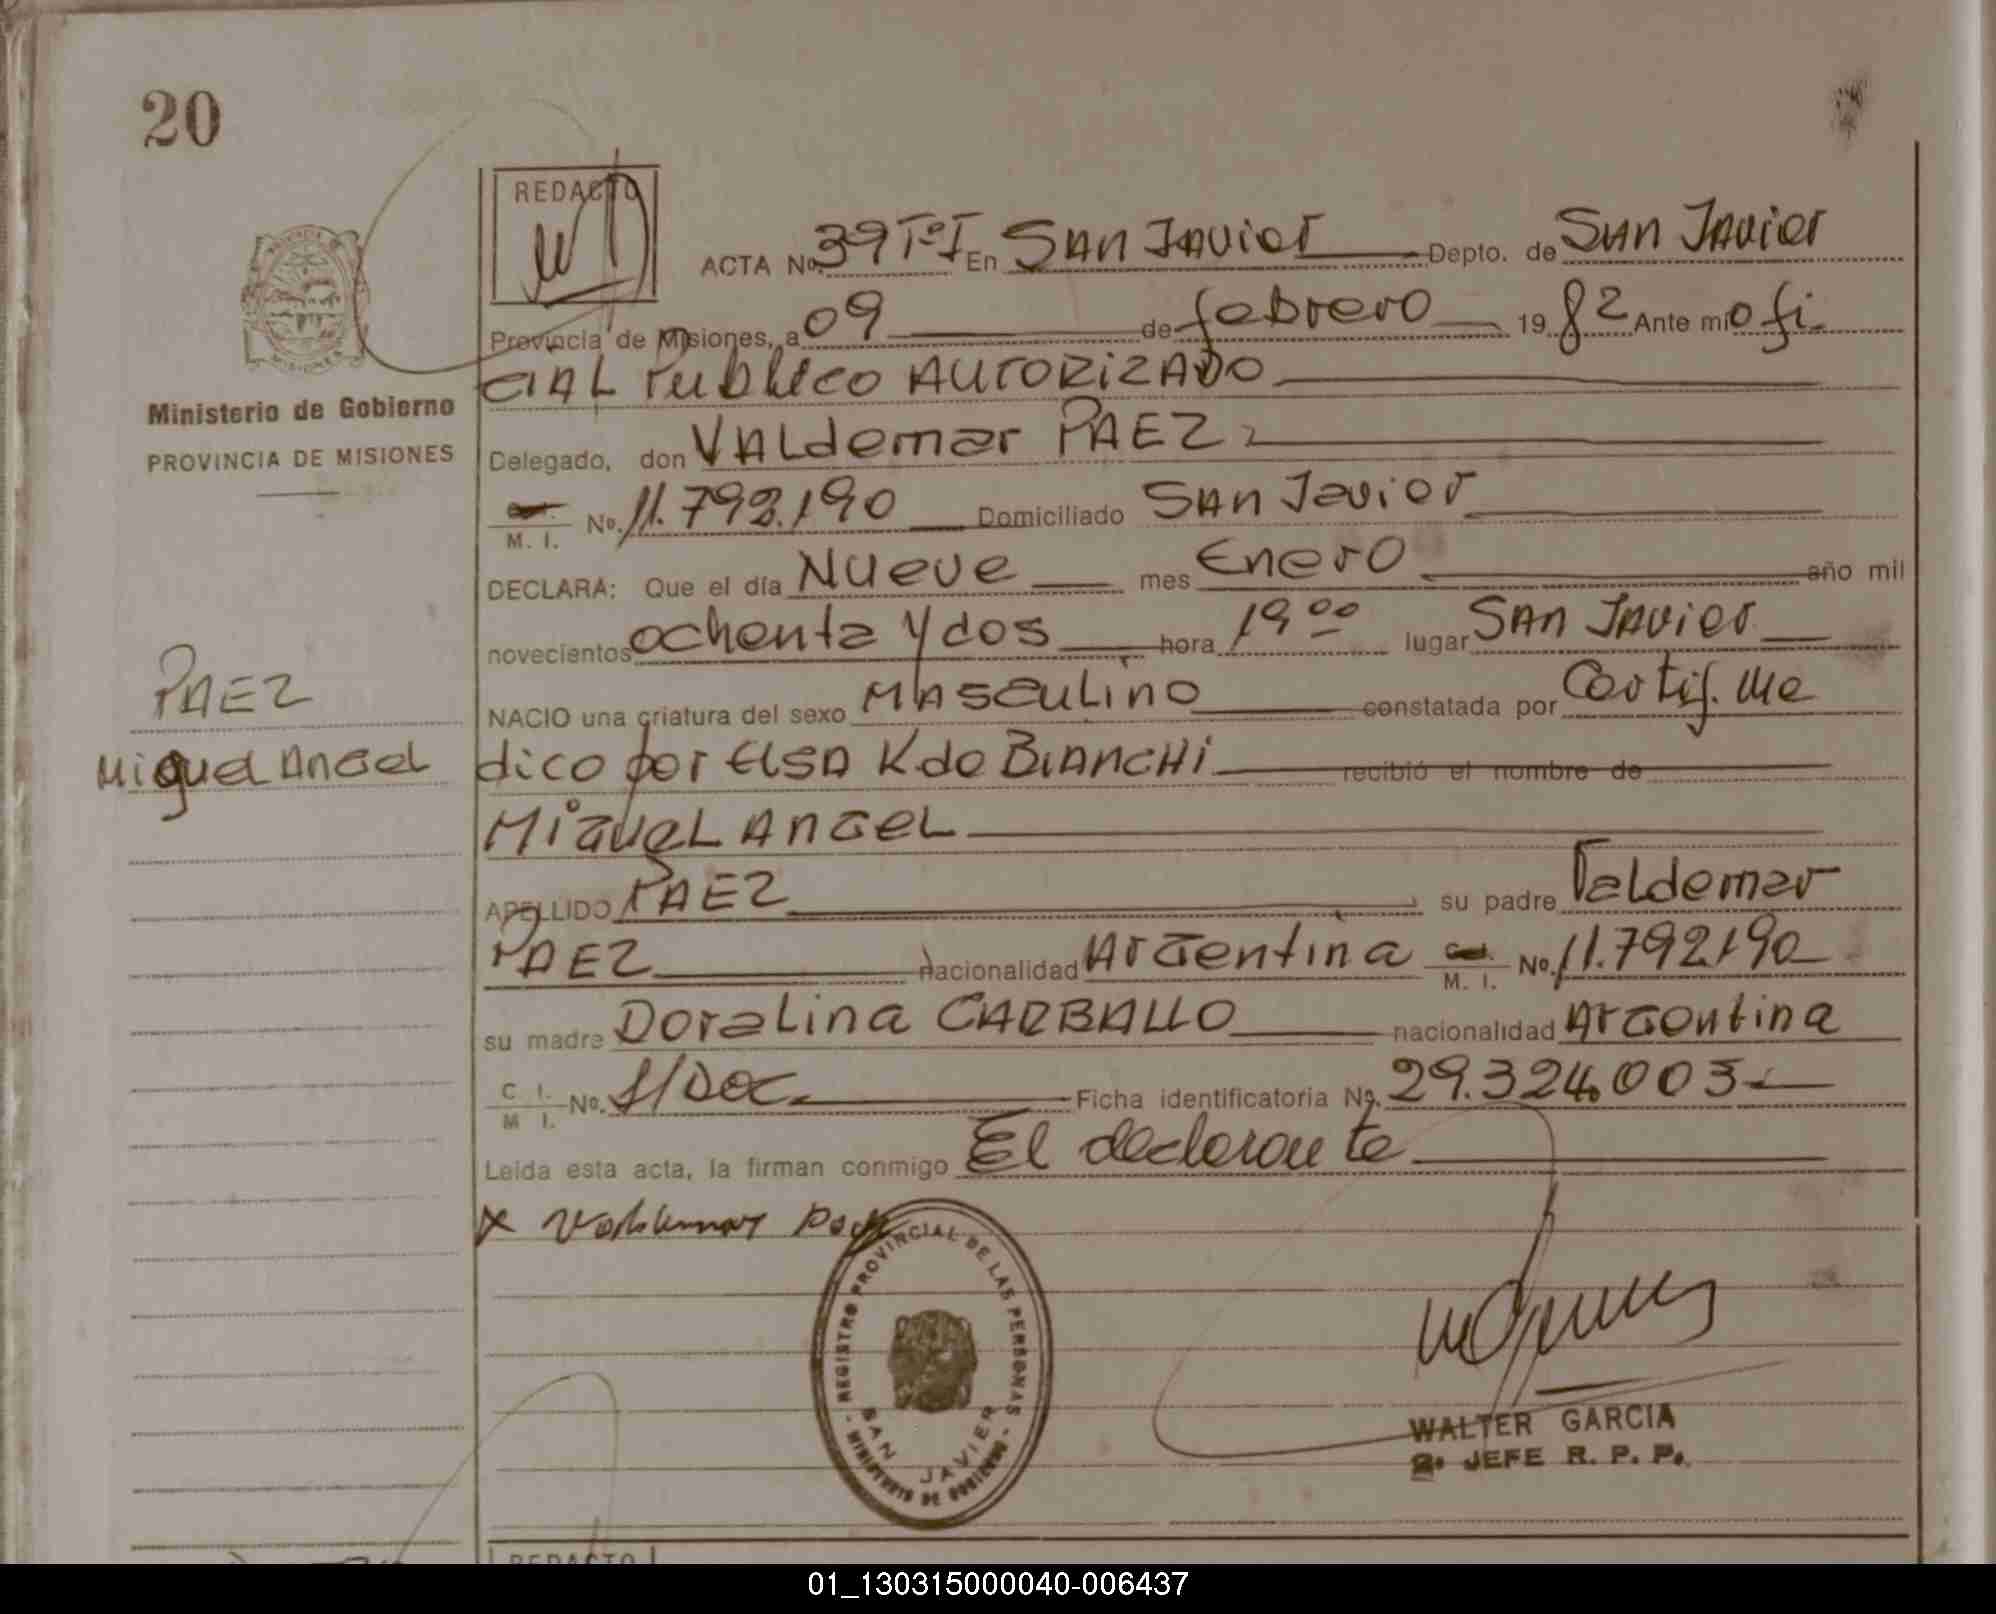 20
REDACTO
ACTA No. 39 Tº I En San Javier Depto. de San Javier
Provincia de Misiones, a 09 de febrero 19 82 Ante mi ofi
cial Publico AUTORIZADO
Ministerio de Gobierno
PROVINCIA DE MISIONES
Delegado, don VALdemar PAEZ
M. I. No. 11.792.190 Domiciliado San Javier
DECLARA: Que el día Nueve mes Enero año mil
novecientos ochenta y dos hora 19 00 lugar San Javier
PAEZ
NACIO una criatura del sexo Masculino constatada por Certif. Me
Miguel Angel
dico por Elsa K. de BIANCHI recibió el nombre de
Miguel Angel
APELLIDO PAEZ su padre Valdemar
PAEZ nacionalidad Argentina M. I. No. 11.792190
su madre Doralina CARBALLO nacionalidad Argentina
C I. M I. No. S/Doc. Ficha identificatoria No. 29.324.003
Leida esta acta, la firman conmigo El declarante
x Valdemar Paez
REGISTRO PROVINCIAL DE LAS PERSONAS
SAN JAVIER
MINISTERIO DE GOBIERNO
WALTER GARCIA
2º JEFE R. P. P.
REDACTO
01_130315000040-006437